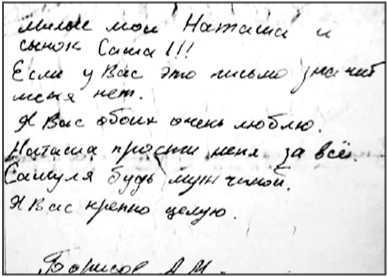 Милые мои Наташа и
сынок Саша!!!
Если у Вас это письмо значит
меня нет.
Я Вас обоих очень люблю.
Наташа прости меня за всё
Сашуля будь мужчиной.
Я Вас крепко целую.
Борисов А.М.